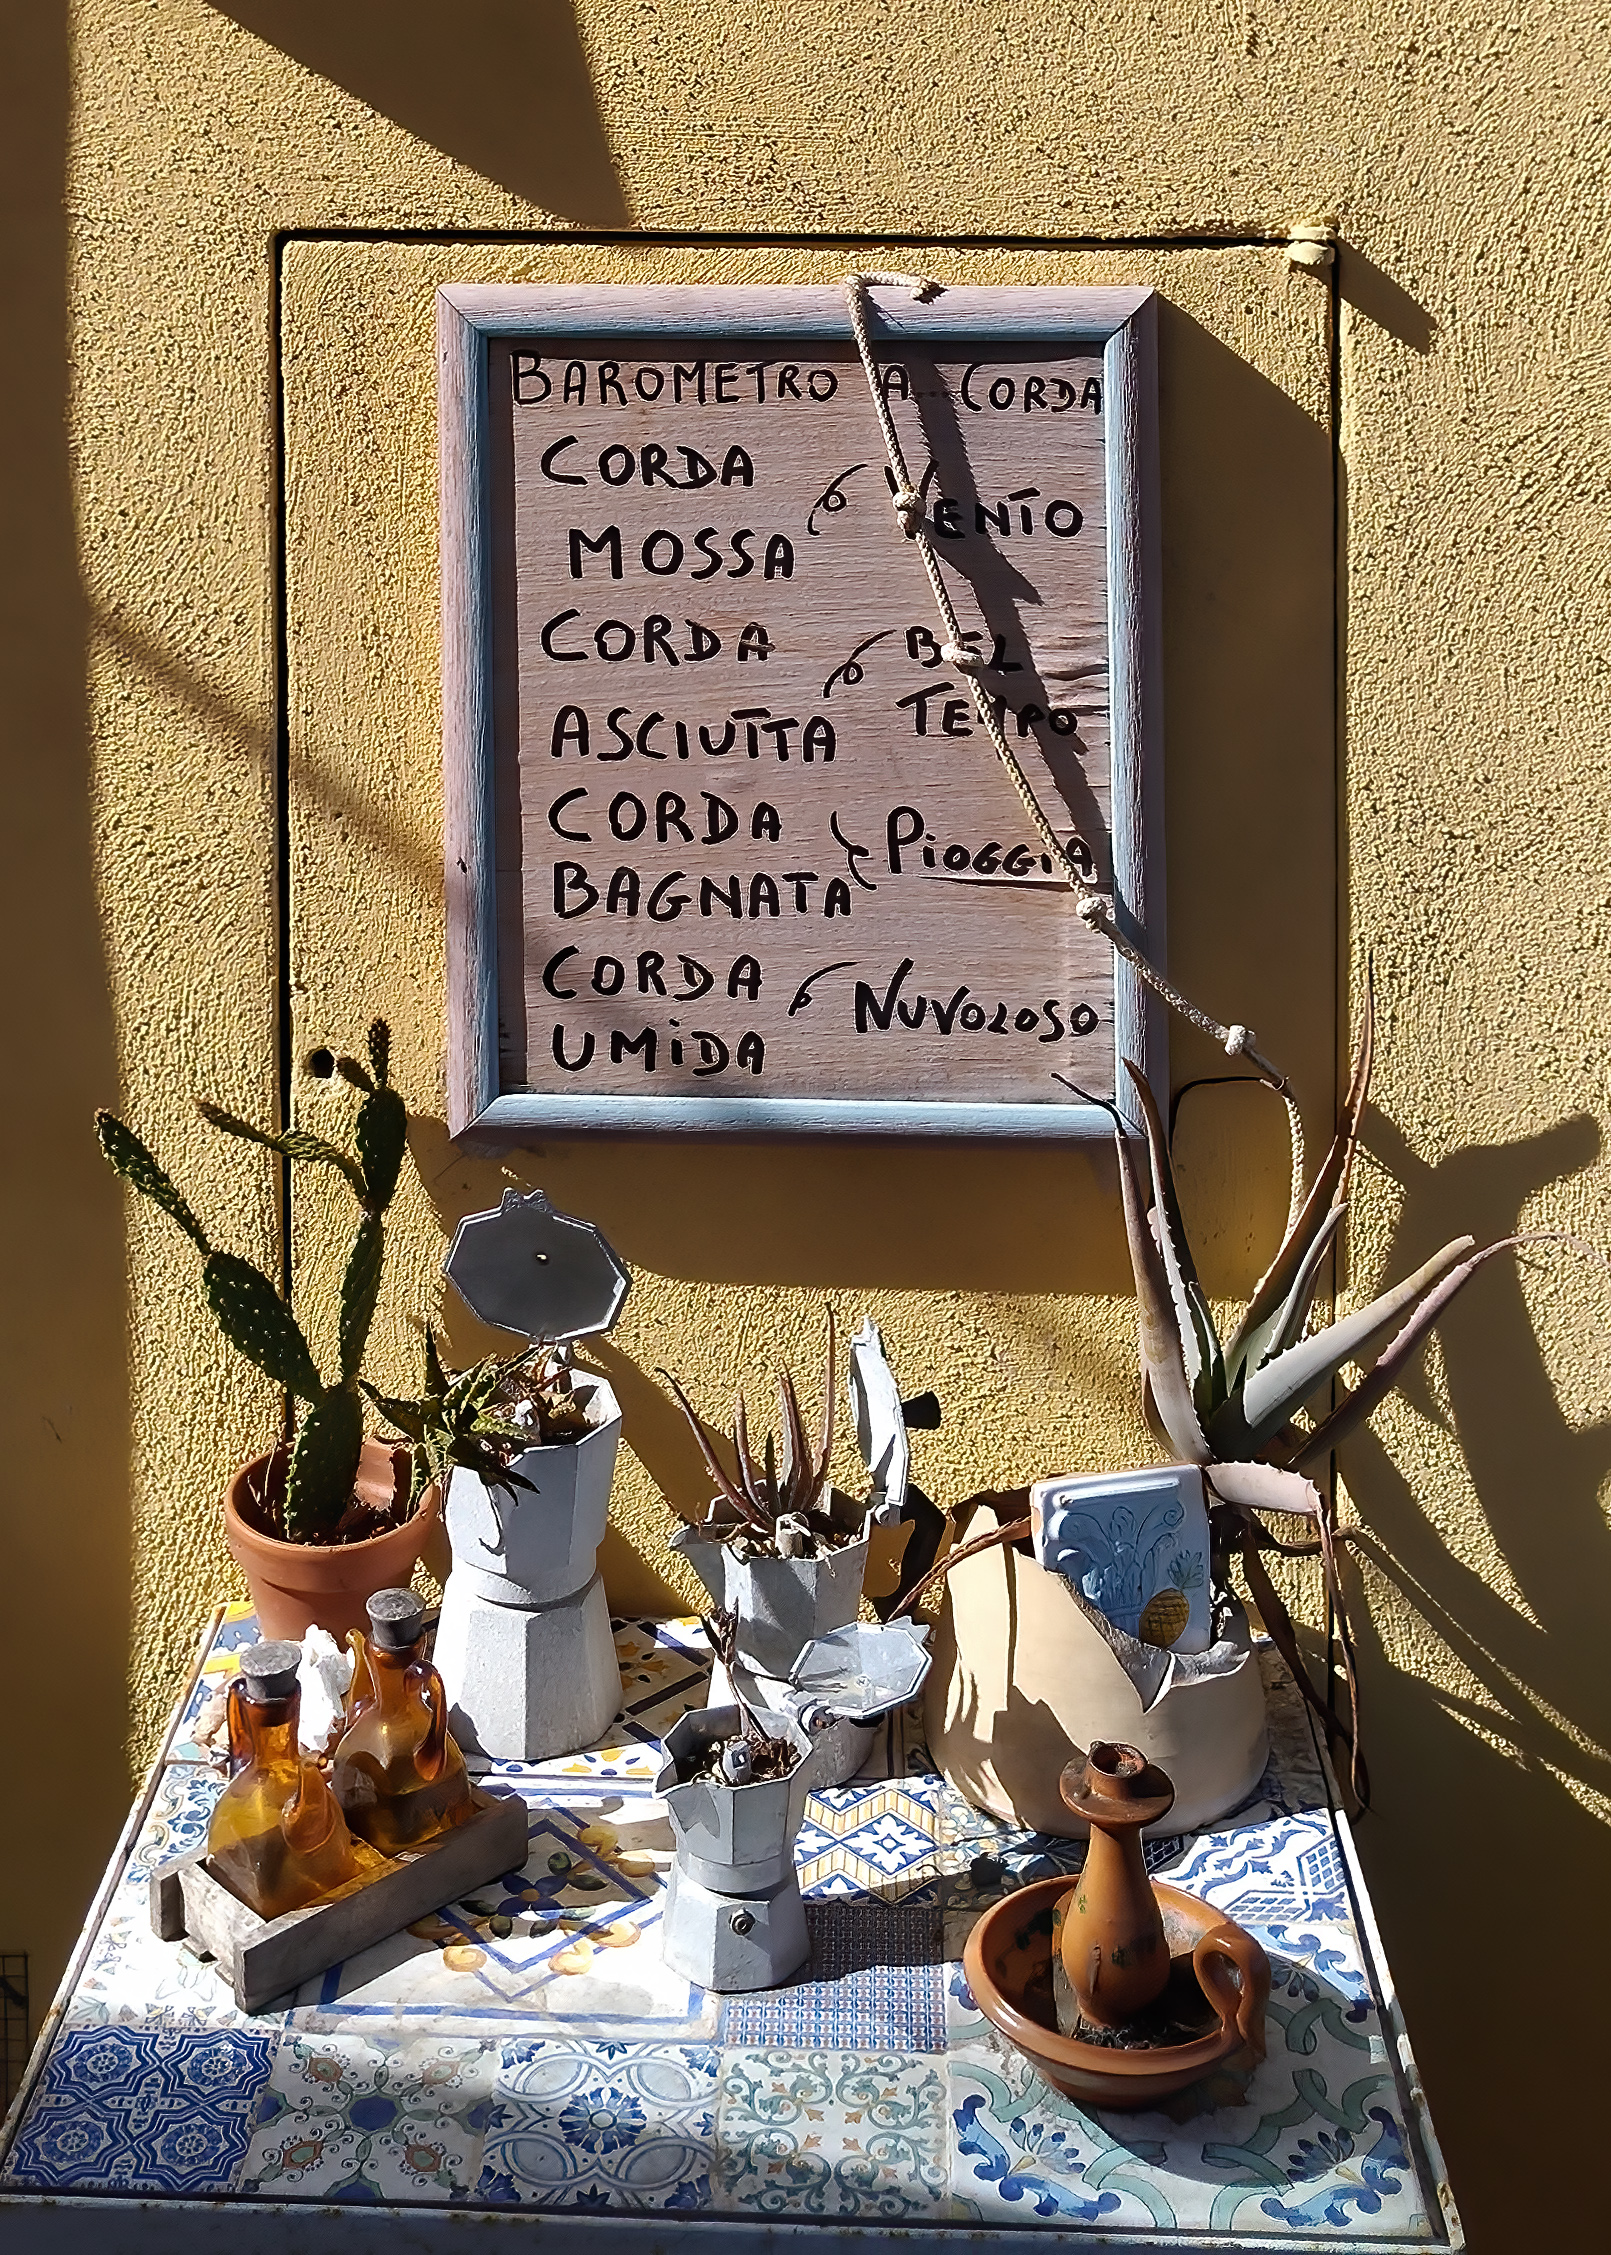 BAROMETRO A CORDA
CORDA
MOSSA
VENTO
CORDA
ASCIUTTA
BEL
TEMPO
CORDA
BAGNATA
PiOGGiA
CORDA
UMiDA
NUVOLOSO